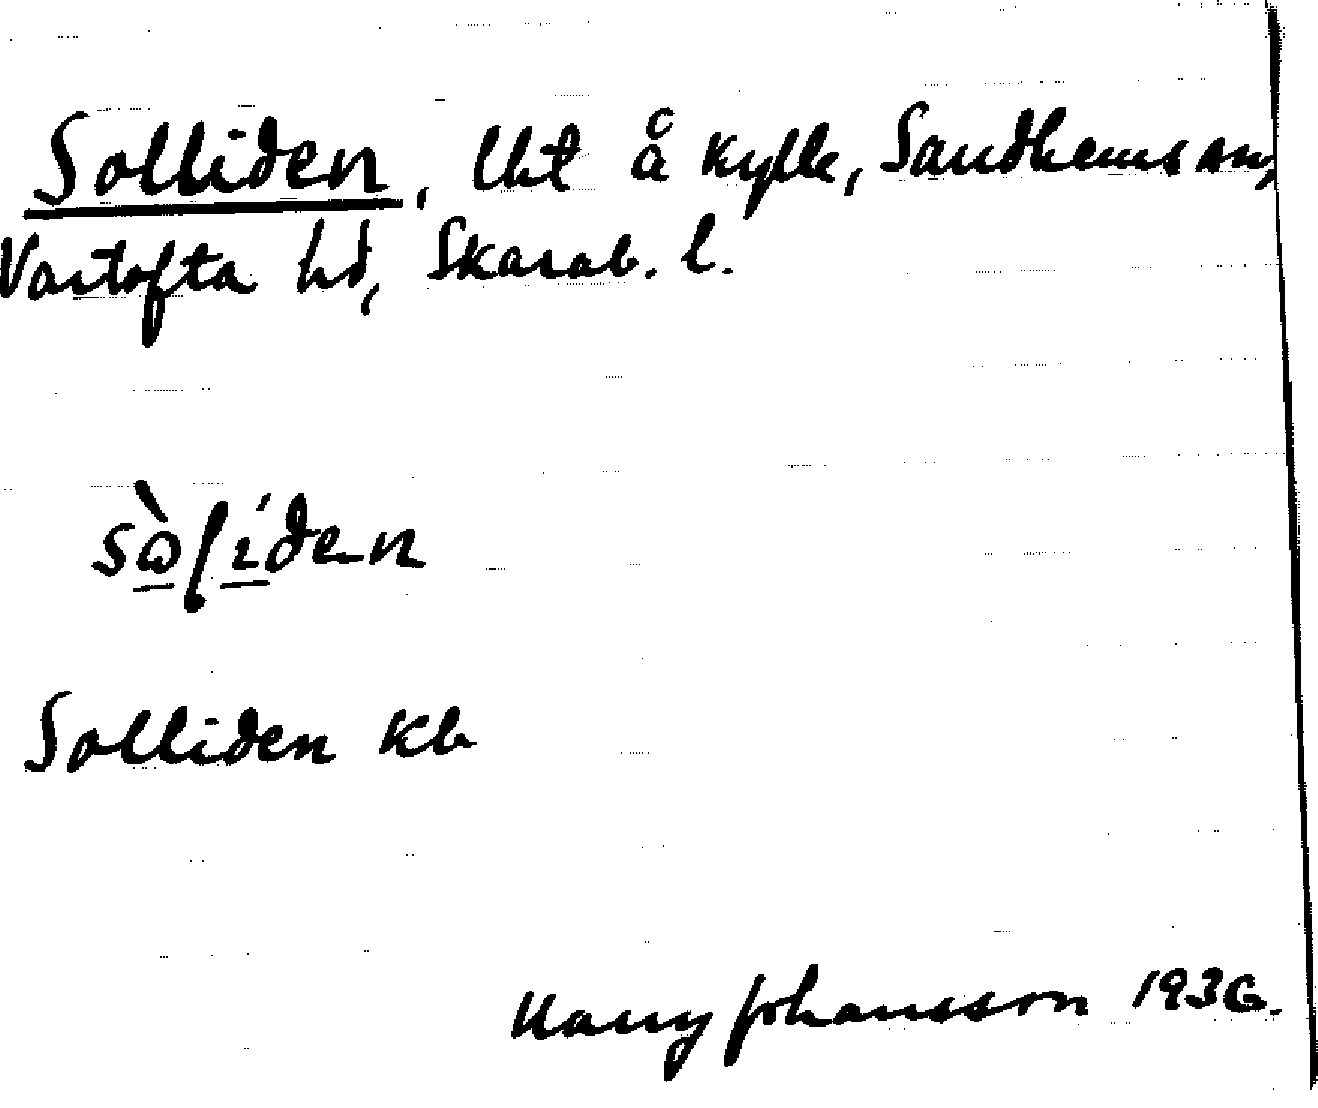 Solliden, lht å Kylle, Sandhems sn,
Vartofta hd, Skarab. l.
sò̠lí̠den
Solliden Kb
Harry Johansson 1936.